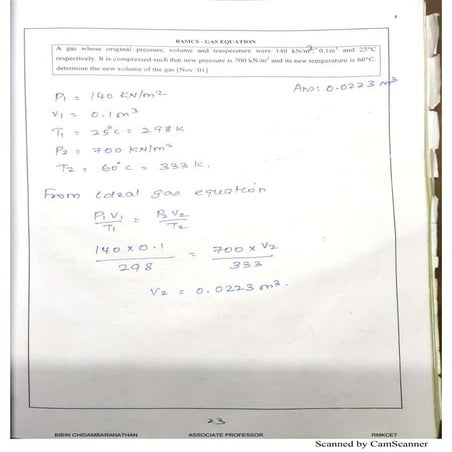 1
BASICS - GAS EQUATION
A gas whose original pressure, volume and temperature were 140 kN/m², 0.1m³ and 25°C
respectively. It is compressed such that new pressure is 700 kN/m² and its new temperature is 60°C.
determine the new volume of the gas [Nov '01]
Ans: 0.0223 m³
P₁ = 140 KN/m²
V₁ = 0.1 m³
T₁ = 25°C = 298 K
P₂ = 700 KN/m²
T₂ = 60°C = 333 K.
From ideal gas equation
P₁V₁/T₁ = P₂V₂/T₂
140 × 0.1/298 = 700 × V₂/333
V₂ = 0.0223 m³.
23
BIBIN CHIDAMBARANATHAN ASSOCIATE PROFESSOR RMKCET
Scanned by CamScanner